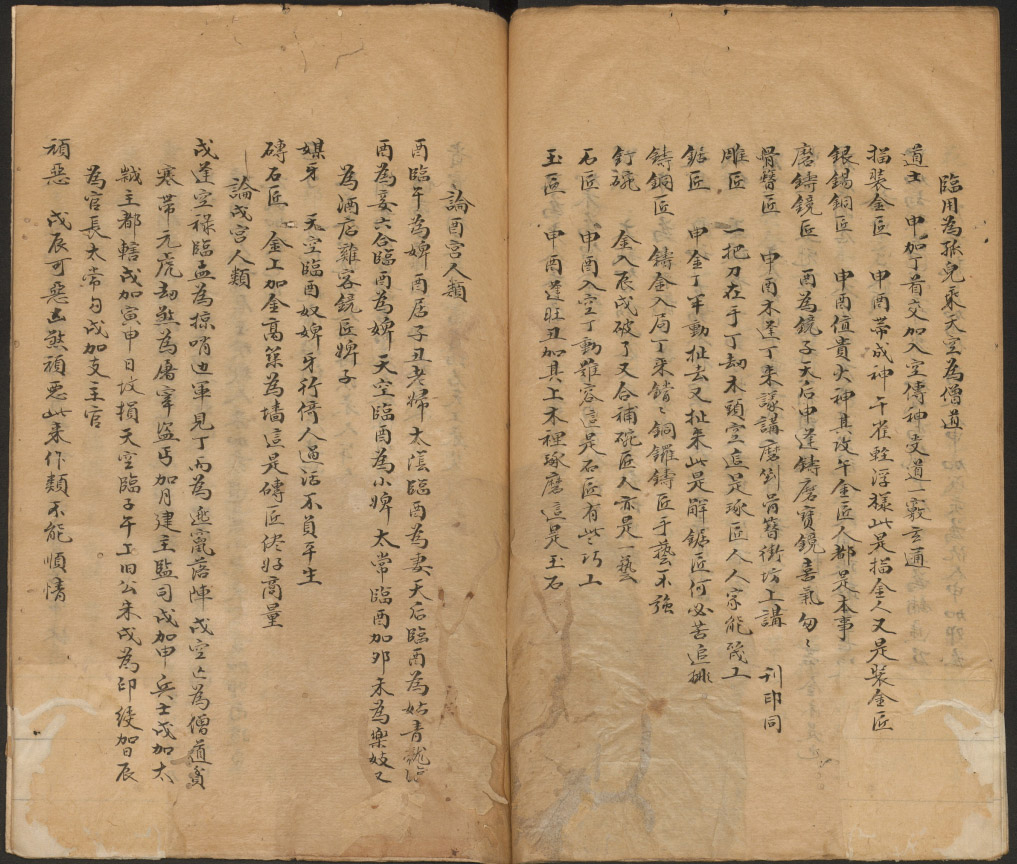 臨用為孤兒乘天空為僧道
道士　申加丁首交加入空傳神受道一竅玄通
描裝金匠　申酉帶成神干雀蛇浮樣此是描金人又是裝金匠
銀錫銅匠　申酉值貴火神其改午金匠人都是本事
磨鑄鏡匠　酉為鏡子天后申逢鑄磨寶鏡喜氣匆々
骨簪匠　申酉木逢丁來議講磨剉骨簪街坊上講　刊印同
雕匠　一把刀在手丁劫木頭空這是琢匠人人家能幾工
鋸匠　申金丁牢動扯去又扯來此是解鋸匠何必苦追挪
鑄銅匠　鑄金入局丁來鑄々銅鑼鑄匠手藝不強
釘碗　金入辰戌破了又合補碗匠人亦是一藝
石匠　申酉入空丁動難容這是石匠有些巧工
玉匠　申酉逢旺丑加其上木裡琢磨這是玉石
論酉宮人類
酉臨午為婢酉居子丑老婦太陰臨酉為妻天后臨酉為姑青龍
酉為妾六合臨酉為婢天空臨酉為小婢太常臨酉加卯未為樂妓又
為酒店雞客鏡匠婢子
媒牙　天空臨酉奴婢牙行倚人過活不員平生
磚石匠　金工加金高築為墻這是磚匠終好商量
論戌宮人類
戌逢空祿臨孟為掠哨边軍見丁丙為逃竄落陣戌空亡為僧道貧
寒帶元虎劫煞為屠宰盜丐加月建主監司戌加申兵士戌加太
歲主都轄戌加寅申日墳損天空臨子午上旧公未戌為印綬加日辰
為官長太常勾戌加支主官
頑惡　戌辰可惡凶煞頑惡此來作類不能順情